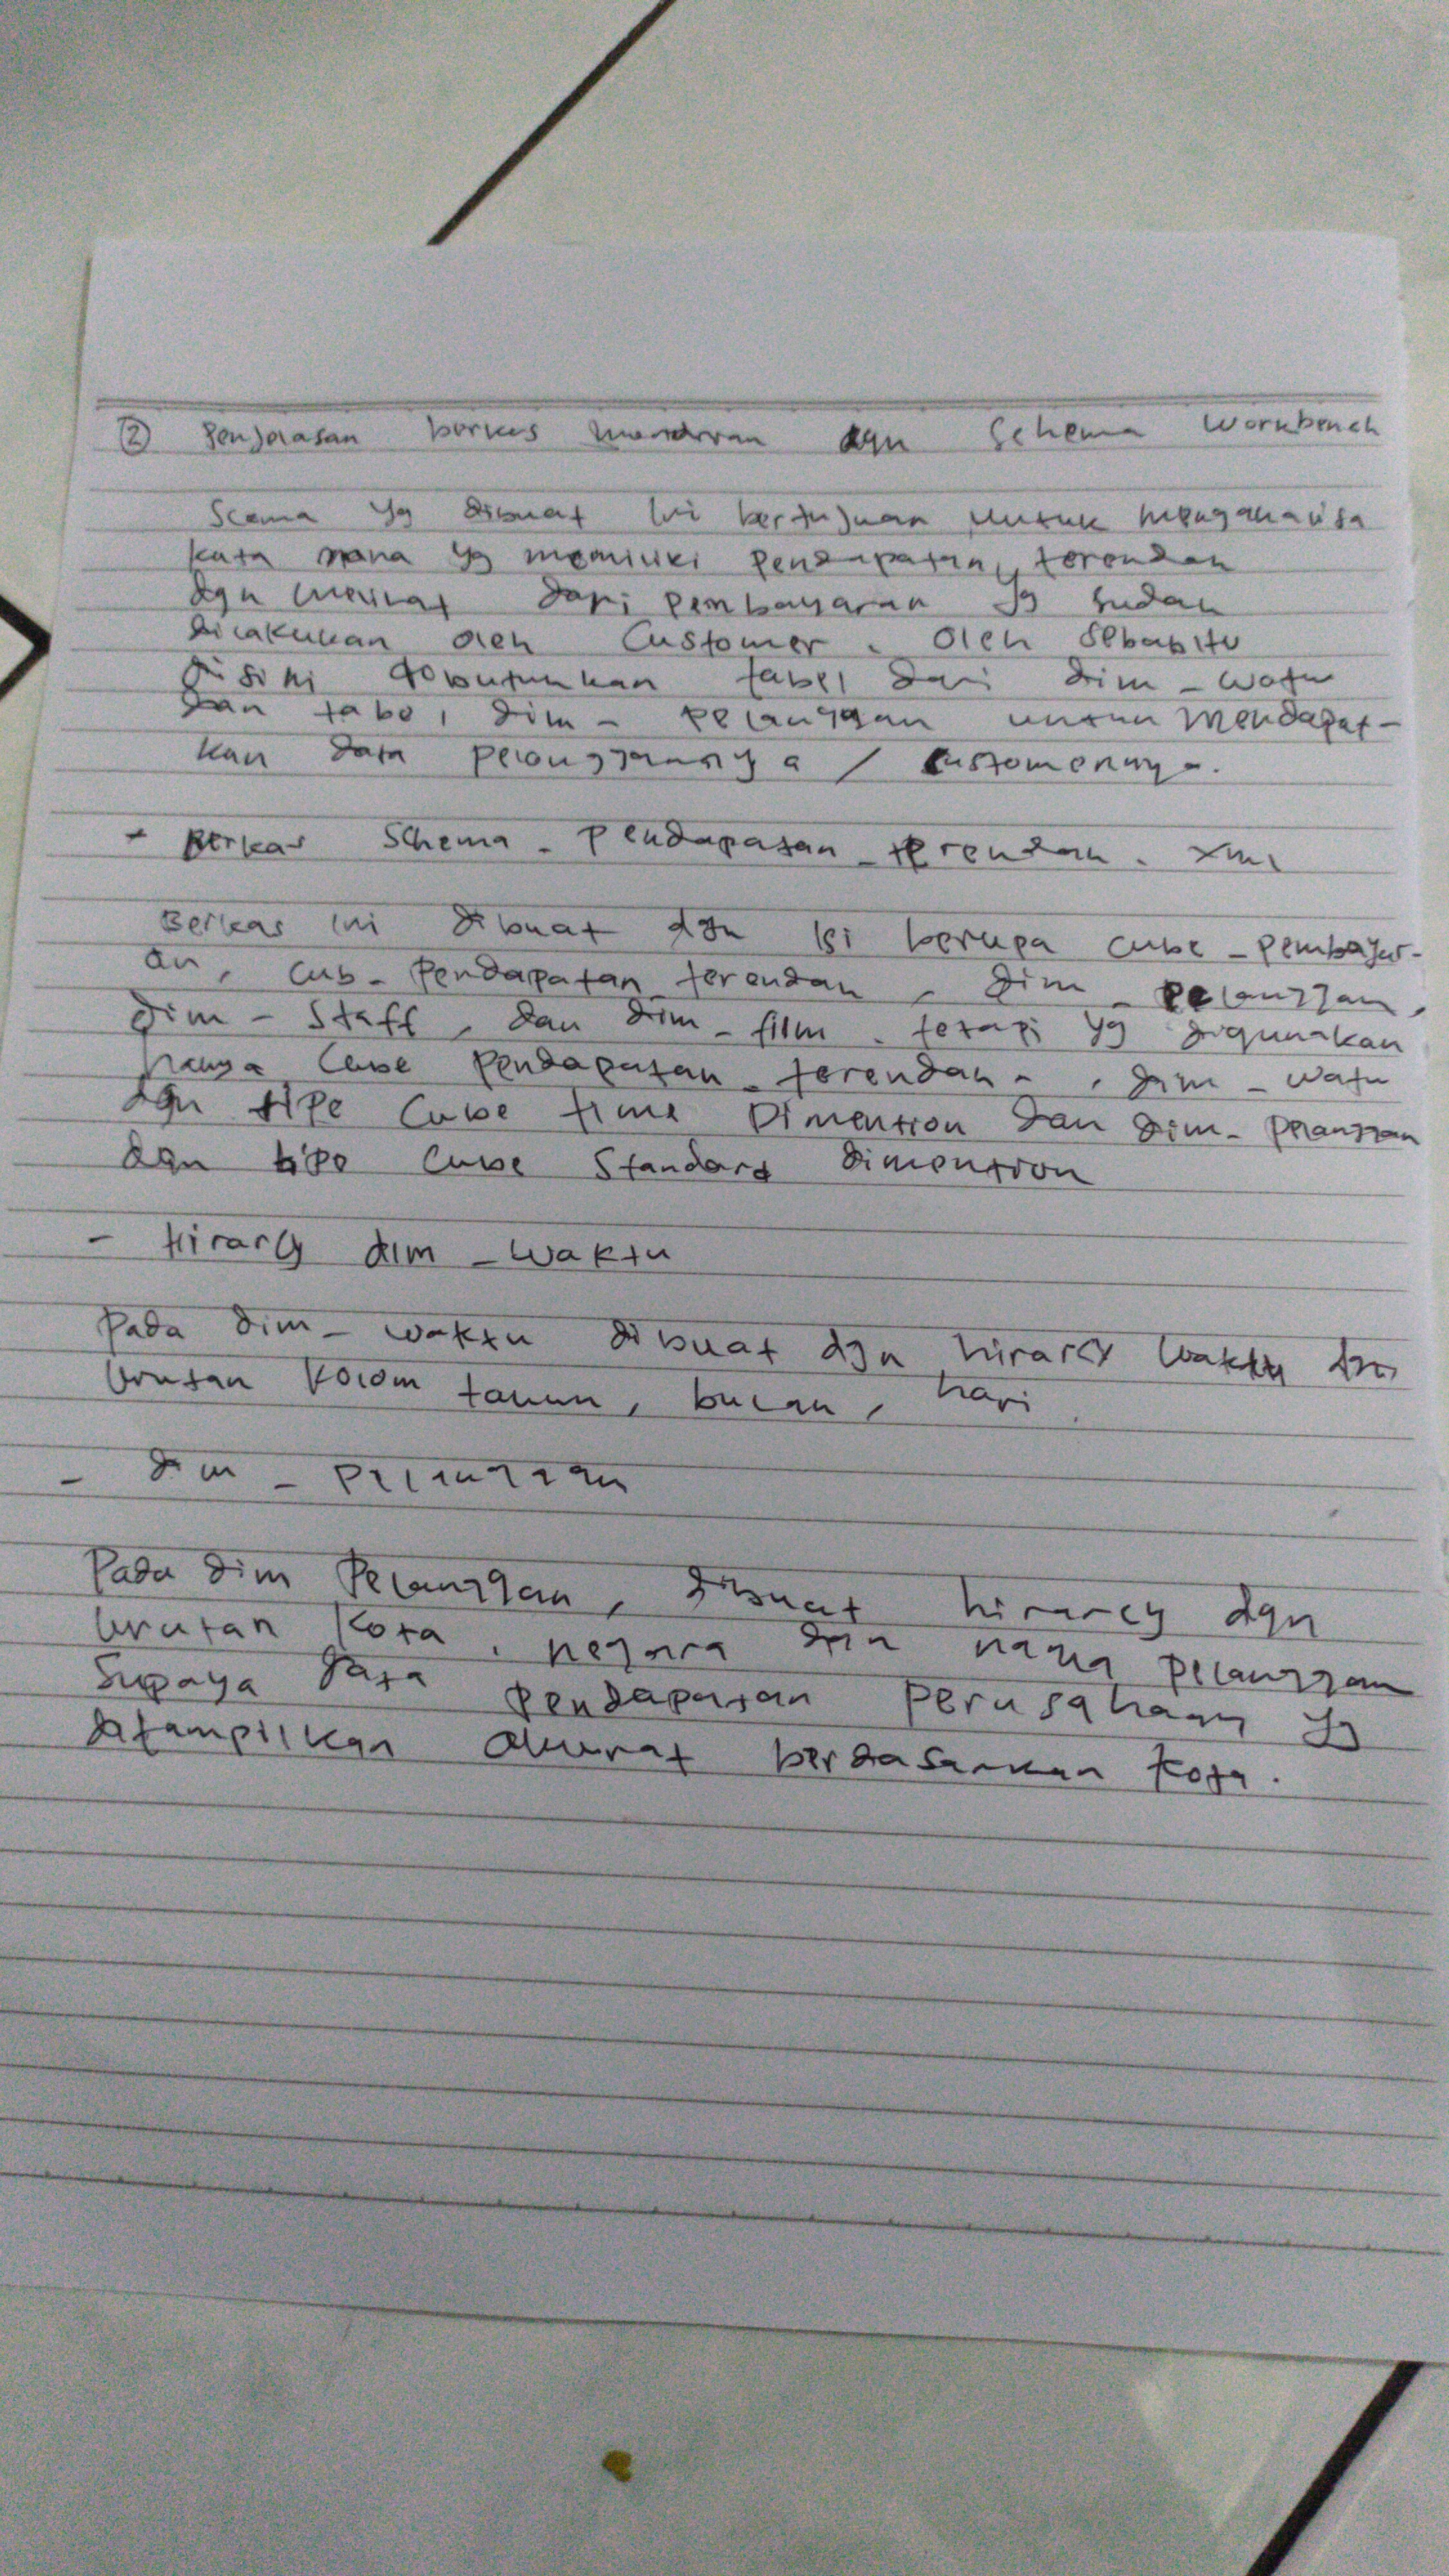 ② Penjelasan berkas mondrian dgn Schema Workbench
Scema yg dibuat ini bertujuan untuk menganalisa
kota mana yg memiliki pendapatan terendah
dgn melihat dari pembayaran yg sudah
dilakukan oleh Customer. Oleh sebabitu
disini dibutuhkan tabel dari dim - watu
dan tabel dim - pelanggan untuk mendapat -
kan data pelanggannya / customernya.
- Berkas Schema - Pendapatan - terendah. xml
Berkas ini dibuat dgn isi berupa cube - pembayar-
an, cub - Pendapatan terendah, dim - pelanggan,
dim - Staff, dan dim - film. tetapi yg digunakan
hanya Cube pendapatan - terendah -, dim - watu
dgn tipe Cube time Dimention dan dim - pelanggan
dgn tipe Cube Standard dimention
- Hirarcy dim - Waktu
Pada dim - waktu dibuat dgn hirarcy waktu dgn
Urutan kolom tahun, bulan, hari
- dim - pelanggan
Pada dim Pelanggan, dibuat hirarcy dgn
Urutan Kota, negara dan nama pelanggan
Supaya data pendapatan perusahaan yg
ditampilkan akurat berdasarkan kota.